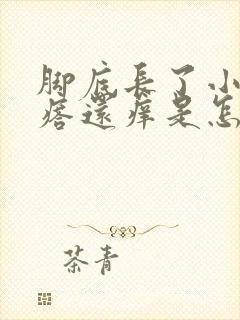 脚底長了小
痞還痒是怎
茶青